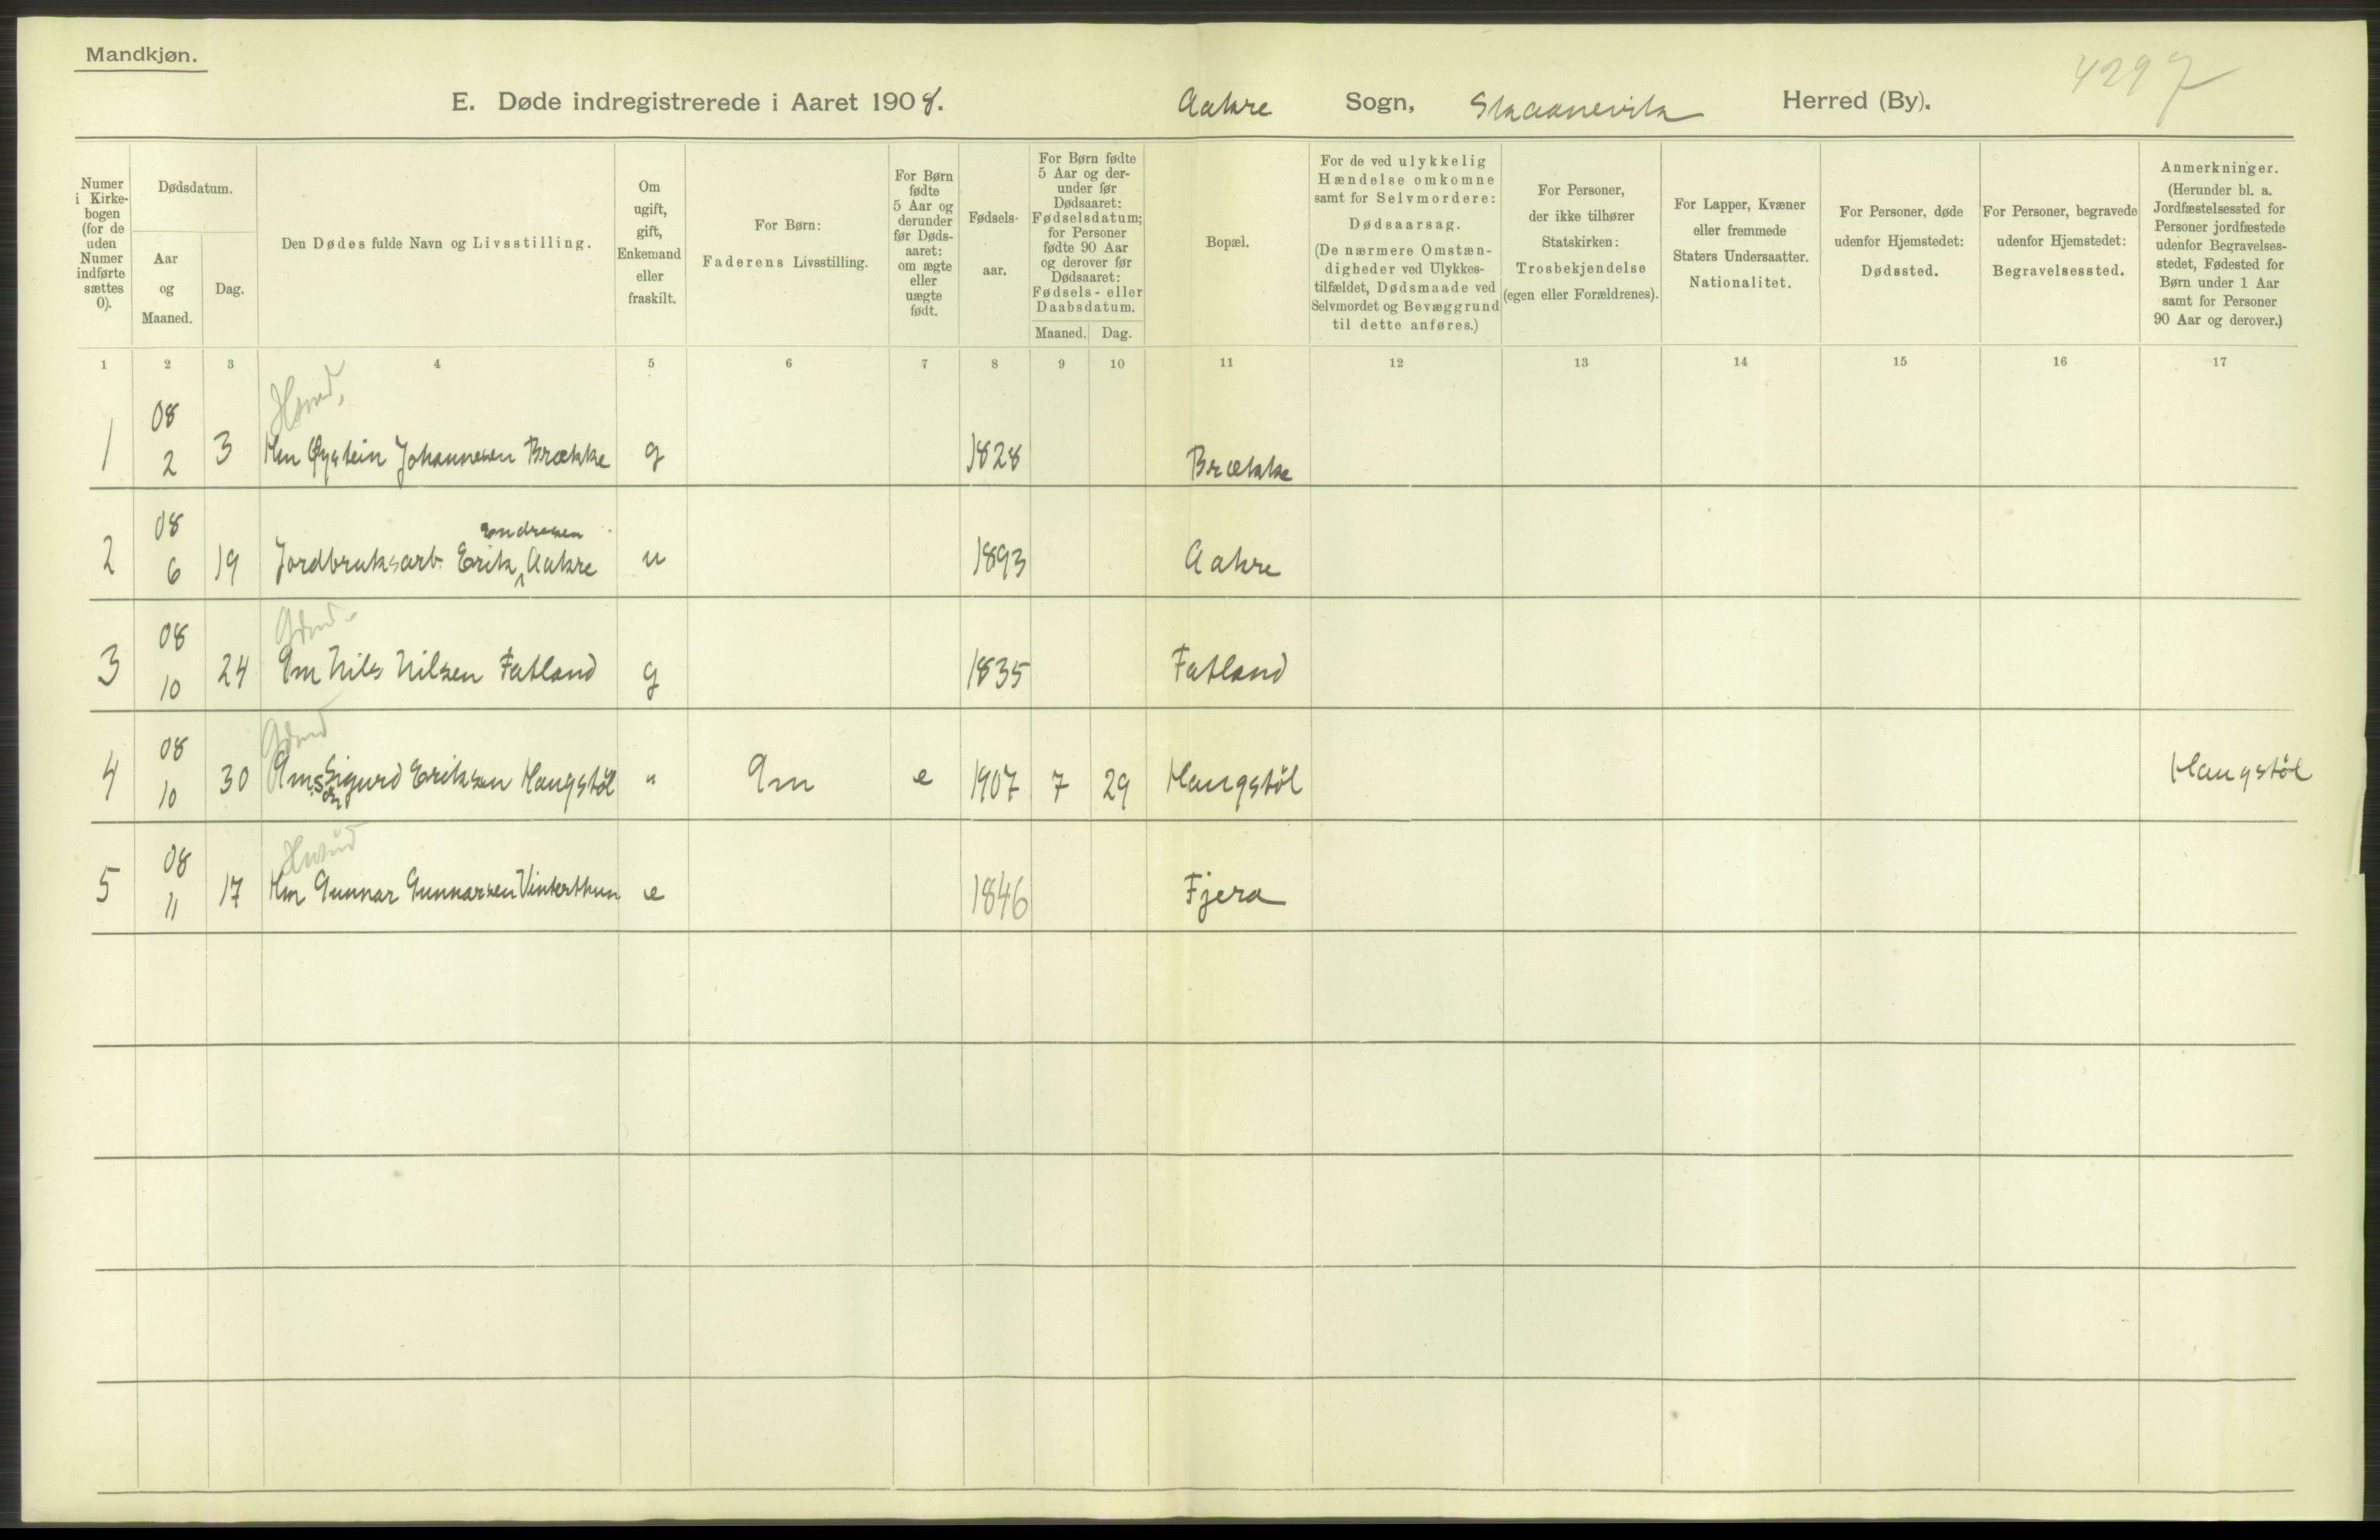 Mandkjøn.
4297
E. Døde indregistrerede i Aaret 1908. Aakre Sogn, Skaanevik Herred (By).
Numer i Kirkebogen (for de uden Numer indførte sættes 0).
Dødsdatum.
Aar og Maaned.
Dag.
Den Dødes fulde Navn og Livsstilling.
Om ugift, gift, Enkemand eller fraskilt.
For Børn: Faderens Livsstilling.
For Børn fødte 5 Aar og derunder før Dødsaaret: om ægte eller uægte født.
Fødselsaar.
For Børn fødte 5 Aar og derunder før Dødsaaret: Fødselsdatum; for Personer fødte 90 Aar og derover før Dødsaaret: Fødsels- eller Daabsdatum.
Maaned. Dag.
Bopæl.
For de ved ulykkelig Hændelse omkomne samt for Selvmordere: Dødsaarsag. (De nærmere Omstændigheder ved Ulykkestilfældet, Dødsmaade ved Selvmordet og Bevæggrund til dette anføres.)
For Personer, der ikke tilhører Statskirken: Trosbekjendelse (egen eller Forældrenes).
For Lapper, Kvæner eller fremmede Staters Undersaatter. Nationalitet.
For Personer, døde udenfor Hjemstedet: Dødssted.
For Personer, begravede udenfor Hjemstedet: Begravelsessted.
Anmerkninger. (Herunder bl. a. Jordfæstelsessted for Personer jordfæstede udenfor Begravelsesstedet, Fødested for Børn under 1 Aar samt for Personer 90 Aar og derover.)
1 2 3 4 5 6 7 8 9 10 11 12 13 14 15 16 17
1 08 2 3 Hm Øystein Johannesen Brække g 1828 Brække
2 08 6 19 Jordbruksarb. Erik Endresen Aakre u 1893 Aakre
3 08 10 24 Gm Nils Nilsen Fatland g 1835 Fatland
4 08 10 30 Gms søn Sigurd Eriksen Haugstöl " Gm e 1907 7 29 Haugstöl Haugstöl
5 08 11 17 Hm Gunnar Gunnarsen Vinterthun e 1846 Fjera